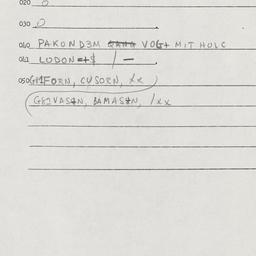 020 0
030 0
040 PAKOND3M VOG+ MIT HOLC
041 LODON=+$ / —
050 GH1FORN, CUSORN, xx
G81VAS+N, BAMAS+N, /xx